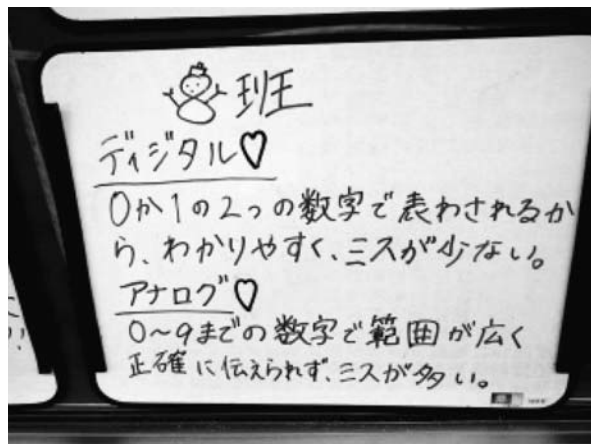 班
ディジタル♡
0か1の2つの数字で表わされるか
ら、わかりやすく、ミスが少ない。
アナログ♡
0〜9までの数字で範囲が広く
正確に伝えられず、ミスが多い。